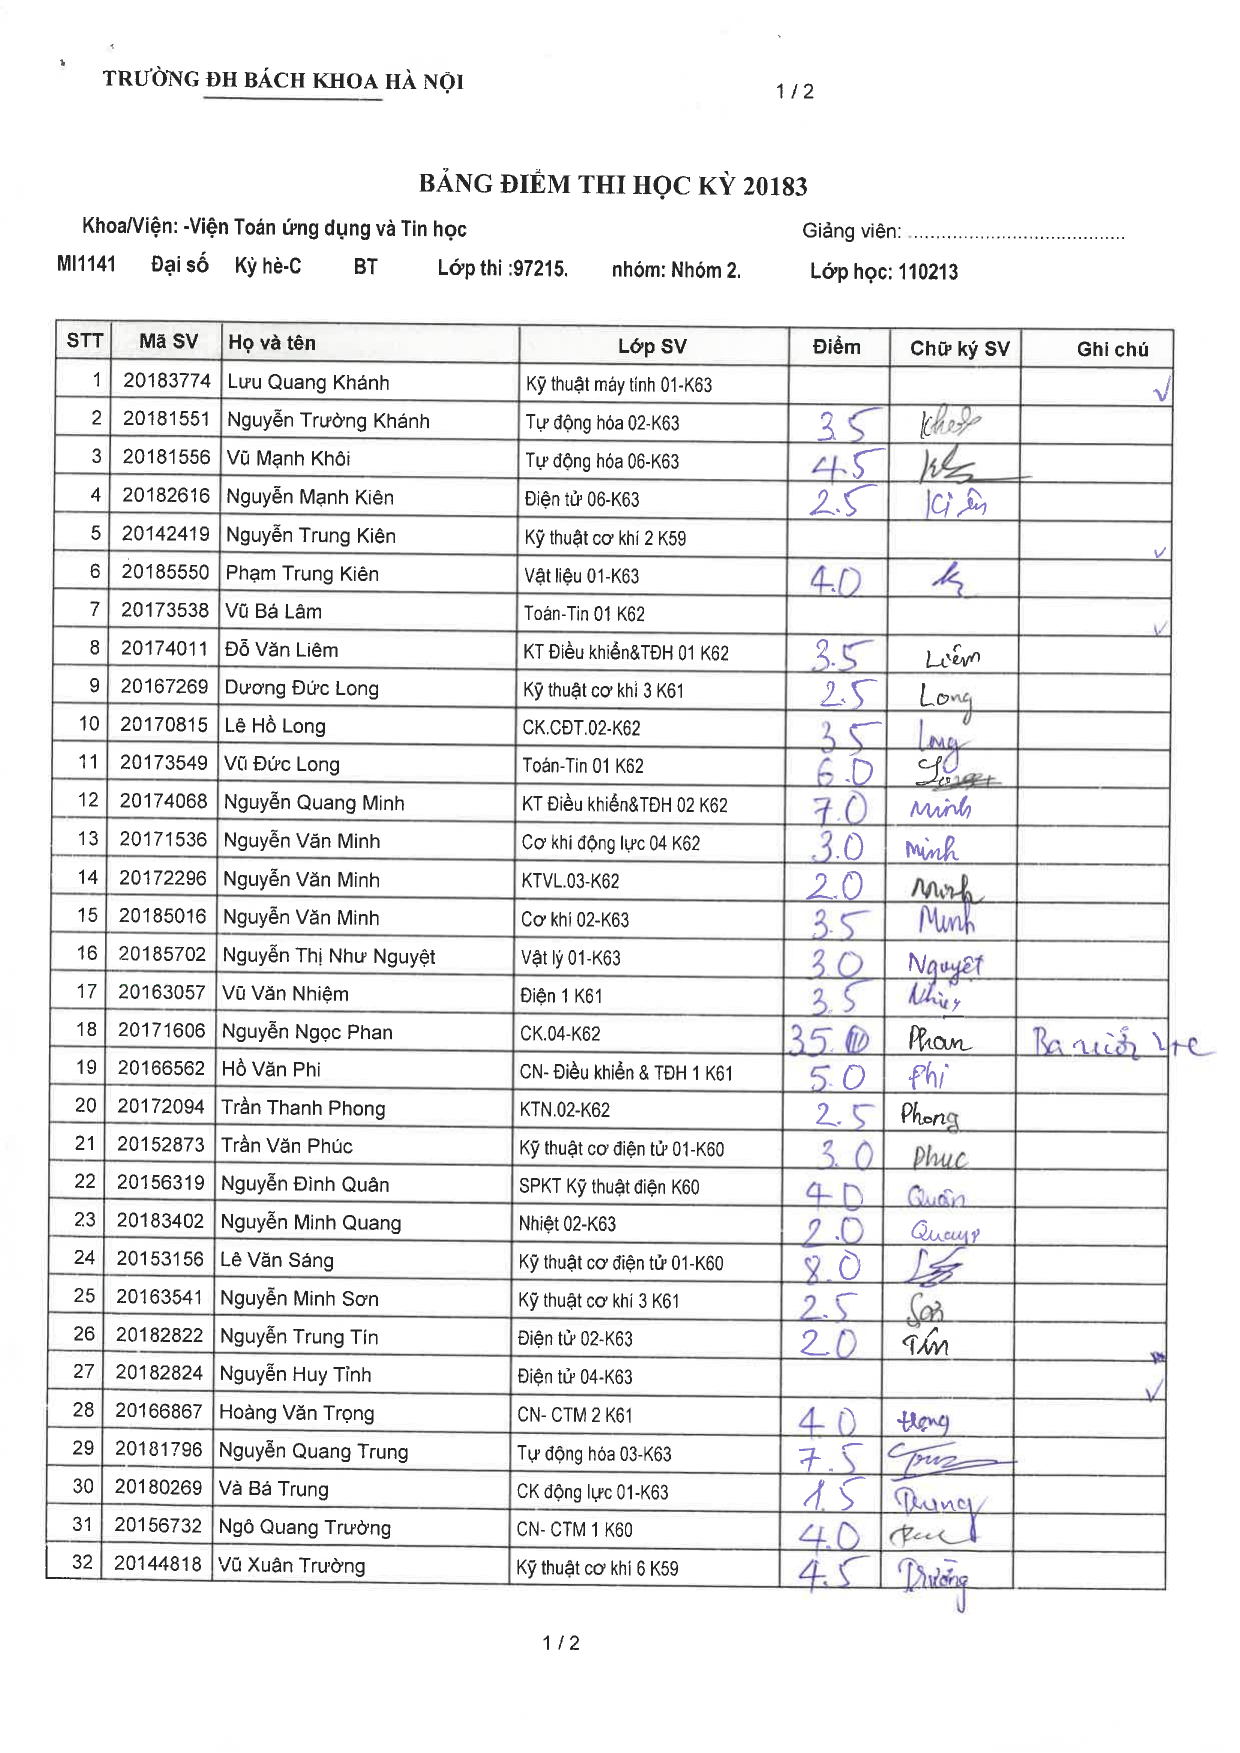 TRƯỜNG ĐH BÁCH KHOA HÀ NỘI
1 / 2
BẢNG ĐIỂM THI HỌC KỲ 20183
Khoa/Viện: -Viện Toán ứng dụng và Tin học Giảng viên: ......................................
MI1141 Đại số Kỳ hè-C BT Lớp thi :97215. nhóm: Nhóm 2. Lớp học: 110213
STT Mã SV Họ và tên Lớp SV Điểm Chữ ký SV Ghi chú
1 20183774 Lưu Quang Khánh Kỹ thuật máy tính 01-K63 ✓
2 20181551 Nguyễn Trường Khánh Tự động hóa 02-K63 3.5
3 20181556 Vũ Mạnh Khôi Tự động hóa 06-K63 4.5
4 20182616 Nguyễn Mạnh Kiên Điện tử 06-K63 2.5 Kiên
5 20142419 Nguyễn Trung Kiên Kỹ thuật cơ khí 2 K59 ✓
6 20185550 Phạm Trung Kiên Vật liệu 01-K63 4.0
7 20173538 Vũ Bá Lâm Toán-Tin 01 K62 ✓
8 20174011 Đỗ Văn Liêm KT Điều khiển&TĐH 01 K62 3.5 Liêm
9 20167269 Dương Đức Long Kỹ thuật cơ khí 3 K61 2.5 Long
10 20170815 Lê Hồ Long CK.CĐT.02-K62 3.5 Long
11 20173549 Vũ Đức Long Toán-Tin 01 K62 6.0
12 20174068 Nguyễn Quang Minh KT Điều khiển&TĐH 02 K62 7.0 Minh
13 20171536 Nguyễn Văn Minh Cơ khí động lực 04 K62 3.0 Minh
14 20172296 Nguyễn Văn Minh KTVL.03-K62 2.0 Minh
15 20185016 Nguyễn Văn Minh Cơ khí 02-K63 3.5 Minh
16 20185702 Nguyễn Thị Như Nguyệt Vật lý 01-K63 3.0 Nguyệt
17 20163057 Vũ Văn Nhiệm Điện 1 K61 3.5
18 20171606 Nguyễn Ngọc Phan CK.04-K62 3.5 Phan Ba rưỡi
19 20166562 Hồ Văn Phi CN- Điều khiển & TĐH 1 K61 5.0 Phi
20 20172094 Trần Thanh Phong KTN.02-K62 2.5 Phong
21 20152873 Trần Văn Phúc Kỹ thuật cơ điện tử 01-K60 3.0 Phuc
22 20156319 Nguyễn Đình Quân SPKT Kỹ thuật điện K60 4.0 Quân
23 20183402 Nguyễn Minh Quang Nhiệt 02-K63 2.0 Quang
24 20153156 Lê Văn Sáng Kỹ thuật cơ điện tử 01-K60 8.0
25 20163541 Nguyễn Minh Sơn Kỹ thuật cơ khí 3 K61 2.5 Sơn
26 20182822 Nguyễn Trung Tín Điện tử 02-K63 2.0 Tín
27 20182824 Nguyễn Huy Tỉnh Điện tử 04-K63 ✓
28 20166867 Hoàng Văn Trọng CN- CTM 2 K61 4.0
29 20181796 Nguyễn Quang Trung Tự động hóa 03-K63 7.5
30 20180269 Và Bá Trung CK động lực 01-K63 1.5 Trung
31 20156732 Ngô Quang Trường CN- CTM 1 K60 4.0
32 20144818 Vũ Xuân Trường Kỹ thuật cơ khí 6 K59 4.5 Trường
1 / 2